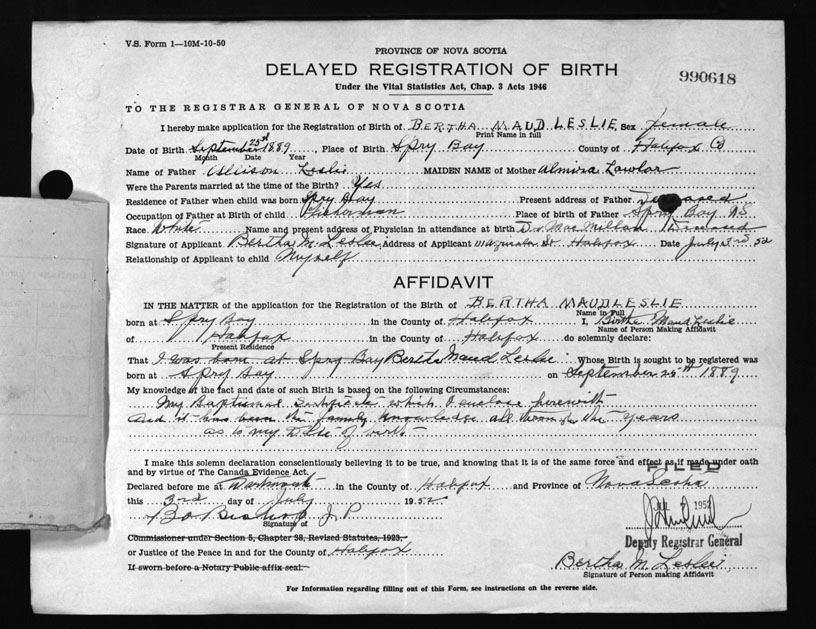 V.S. Form 1—10M-10-50
PROVINCE OF NOVA SCOTIA
DELAYED REGISTRATION OF BIRTH
990618
Under the Vital Statistics Act, Chap. 3 Acts 1946
TO THE REGISTRAR GENERAL OF NOVA SCOTIA
I hereby make application for the Registration of Birth of BERTHA MAUD LESLIE, Sex Female
Print Name in full
Date of Birth September 25th 1889, Place of Birth Spry Bay County of Halifax Co
Month Date Year
Name of Father Allison Leslie MAIDEN NAME of Mother Almira Lawlor
Were the Parents married at the time of the Birth? Yes
Residence of Father when child was born Spry Bay Present address of Father Deceased
Occupation of Father at Birth of child Fisherman Place of birth of Father Spry Bay N.S.
Race White Name and present address of Physician in attendance at birth Dr MacMillan Deceased
Signature of Applicant Bertha M. Leslie Address of Applicant St Halifax Date July 3rd 52
Relationship of Applicant to child Myself
AFFIDAVIT
IN THE MATTER of the application for the Registration of the Birth of BERTHA MAUD LESLIE
Name in Full
born at Spry Bay in the County of Halifax I, Bertha Maud Leslie
Name of Person Making Affidavit
of Halifax in the County of Halifax do solemnly declare:
Present Residence
That I was born at Spry Bay Bertha Maud Leslie Whose Birth is sought to be registered was
born at Spry Bay on September 25th 1889
My knowledge of the fact and date of such Birth is based on the following Circumstances:
My Baptismal Certificate which I enclose herewith
and it has been the family knowledge all through the years
as to my Date of birth
I make this solemn declaration conscientiously believing it to be true, and knowing that it is of the same force and effect as if made under oath
and by virtue of The Canada Evidence Act.
FILED
Declared before me at Dartmouth in the County of Halifax and Province of Nova Scotia
this 3rd day of July 1952
1952
Bishop J.P.
Signature
Deputy Registrar General
Commissioner under Section 5, Chapter 38, Revised Statutes, 1923,
or Justice of the Peace in and for the County of Halifax
Bertha M. Leslie
If sworn before a Notary Public affix seal.
Signature of Person making Affidavit
For Information regarding filling out of this Form, see instructions on the reverse side.